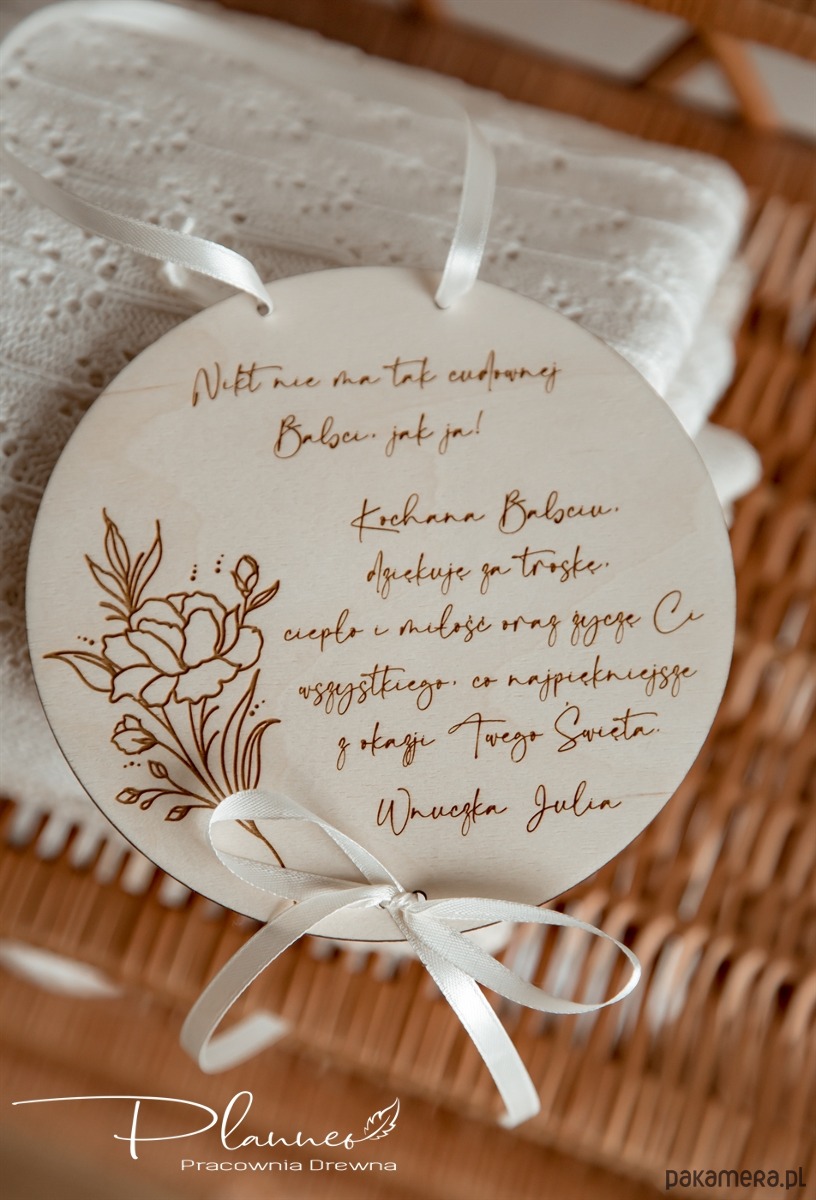 Nikt nie ma tak cudownej
Babci, jak ja!
Kochana Babciu,
dziękuję za troskę,
ciepło i miłość oraz życzę Ci
wszystkiego, co najpiękniejsze
z okazji Twego Święta.
Wnuczka Julia
Planneo
Pracownia Drewna
pakamera.pl